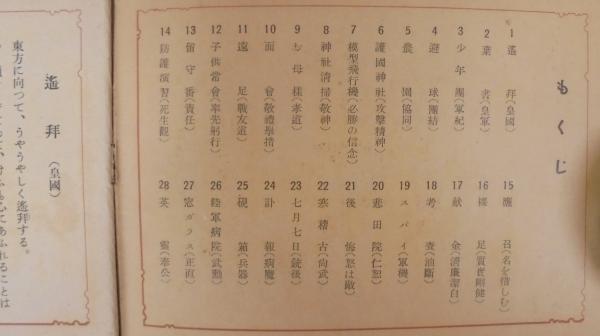 もくじ
1 遙拜(皇國)
2 葉書(皇軍)
3 少年團(軍紀)
4 避球(團結)
5 農園(協同)
6 護國神社(攻擊精神)
7 模型飛行機(必勝の信念)
8 神社淸掃(敬神)
9 お母樣(孝道)
10 面會(敬禮擧措)
11 遠足(戰友道)
12 子供常會(率先躬行)
13 留守番(責任)
14 防護演習(死生觀)
15 應召(名を惜しむ)
16 裸足(質實剛健)
17 献金(淸廉潔白)
18 考査(油斷)
19 スパイ(軍機)
20 悲田院(仁恕)
21 後悔(怒は敵)
22 寒稽古(尙武)
23 七月七日(銃後)
24 訃報(病魔)
25 硯箱(兵器)
26 陸軍病院(武勳)
27 窓ガラス(正直)
28 英靈(奉公)
遙拜(皇國)
東方に向つて、うやうやしく遙拜する。